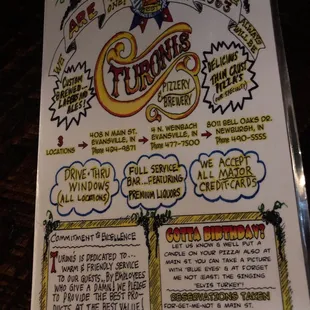 WE
ARE
AND
ALWAYS
AVAILABLE
CUSTOM
BREWED
LAGERS AND
ALES!
TURONI'S
PIZZERY &
BREWERY
DELICIOUS
THIN CRUST
PIZZAS
(OUR SPECIALTY)
3
LOCATIONS
408 N MAIN ST.
EVANSVILLE, IN
Phone 424-9871
4 N. WEINBACH
EVANSVILLE, IN
Phone 477-7500
8011 BELL OAKS DR.
NEWBURGH, IN
Phone 490-5555
DRIVE-THRU
WINDOWS
(ALL LOCATIONS)
FULL SERVICE
BAR...FEATURING
PREMIUM LIQUORS
WE ACCEPT
ALL MAJOR
CREDIT-CARDS
COMMITMENT to EXCELLENCE
TURONIS IS DEDICATED TO...
WARM & FRIENDLY SERVICE
TO OUR GUESTS... BY EMPLOYEES
WHO GIVE A DAMN! WE PLEDGE
TO PROVIDE THE BEST PRO-
DUCTS AT THE BEST VALUE!
GOTTA BIRTHDAY?
LET US KNOW & WE'LL PUT A
CANDLE ON YOUR PIZZA! ALSO AT
MAIN ST. YOU CAN TAKE A PICTURE
WITH 'BLUE EYES' & AT FORGET
ME NOT (EAST), THE SINGING
'ELVIS TURKEY'!
RESERVATIONS TAKEN
FOR-GET-ME-NOT & MAIN ST.